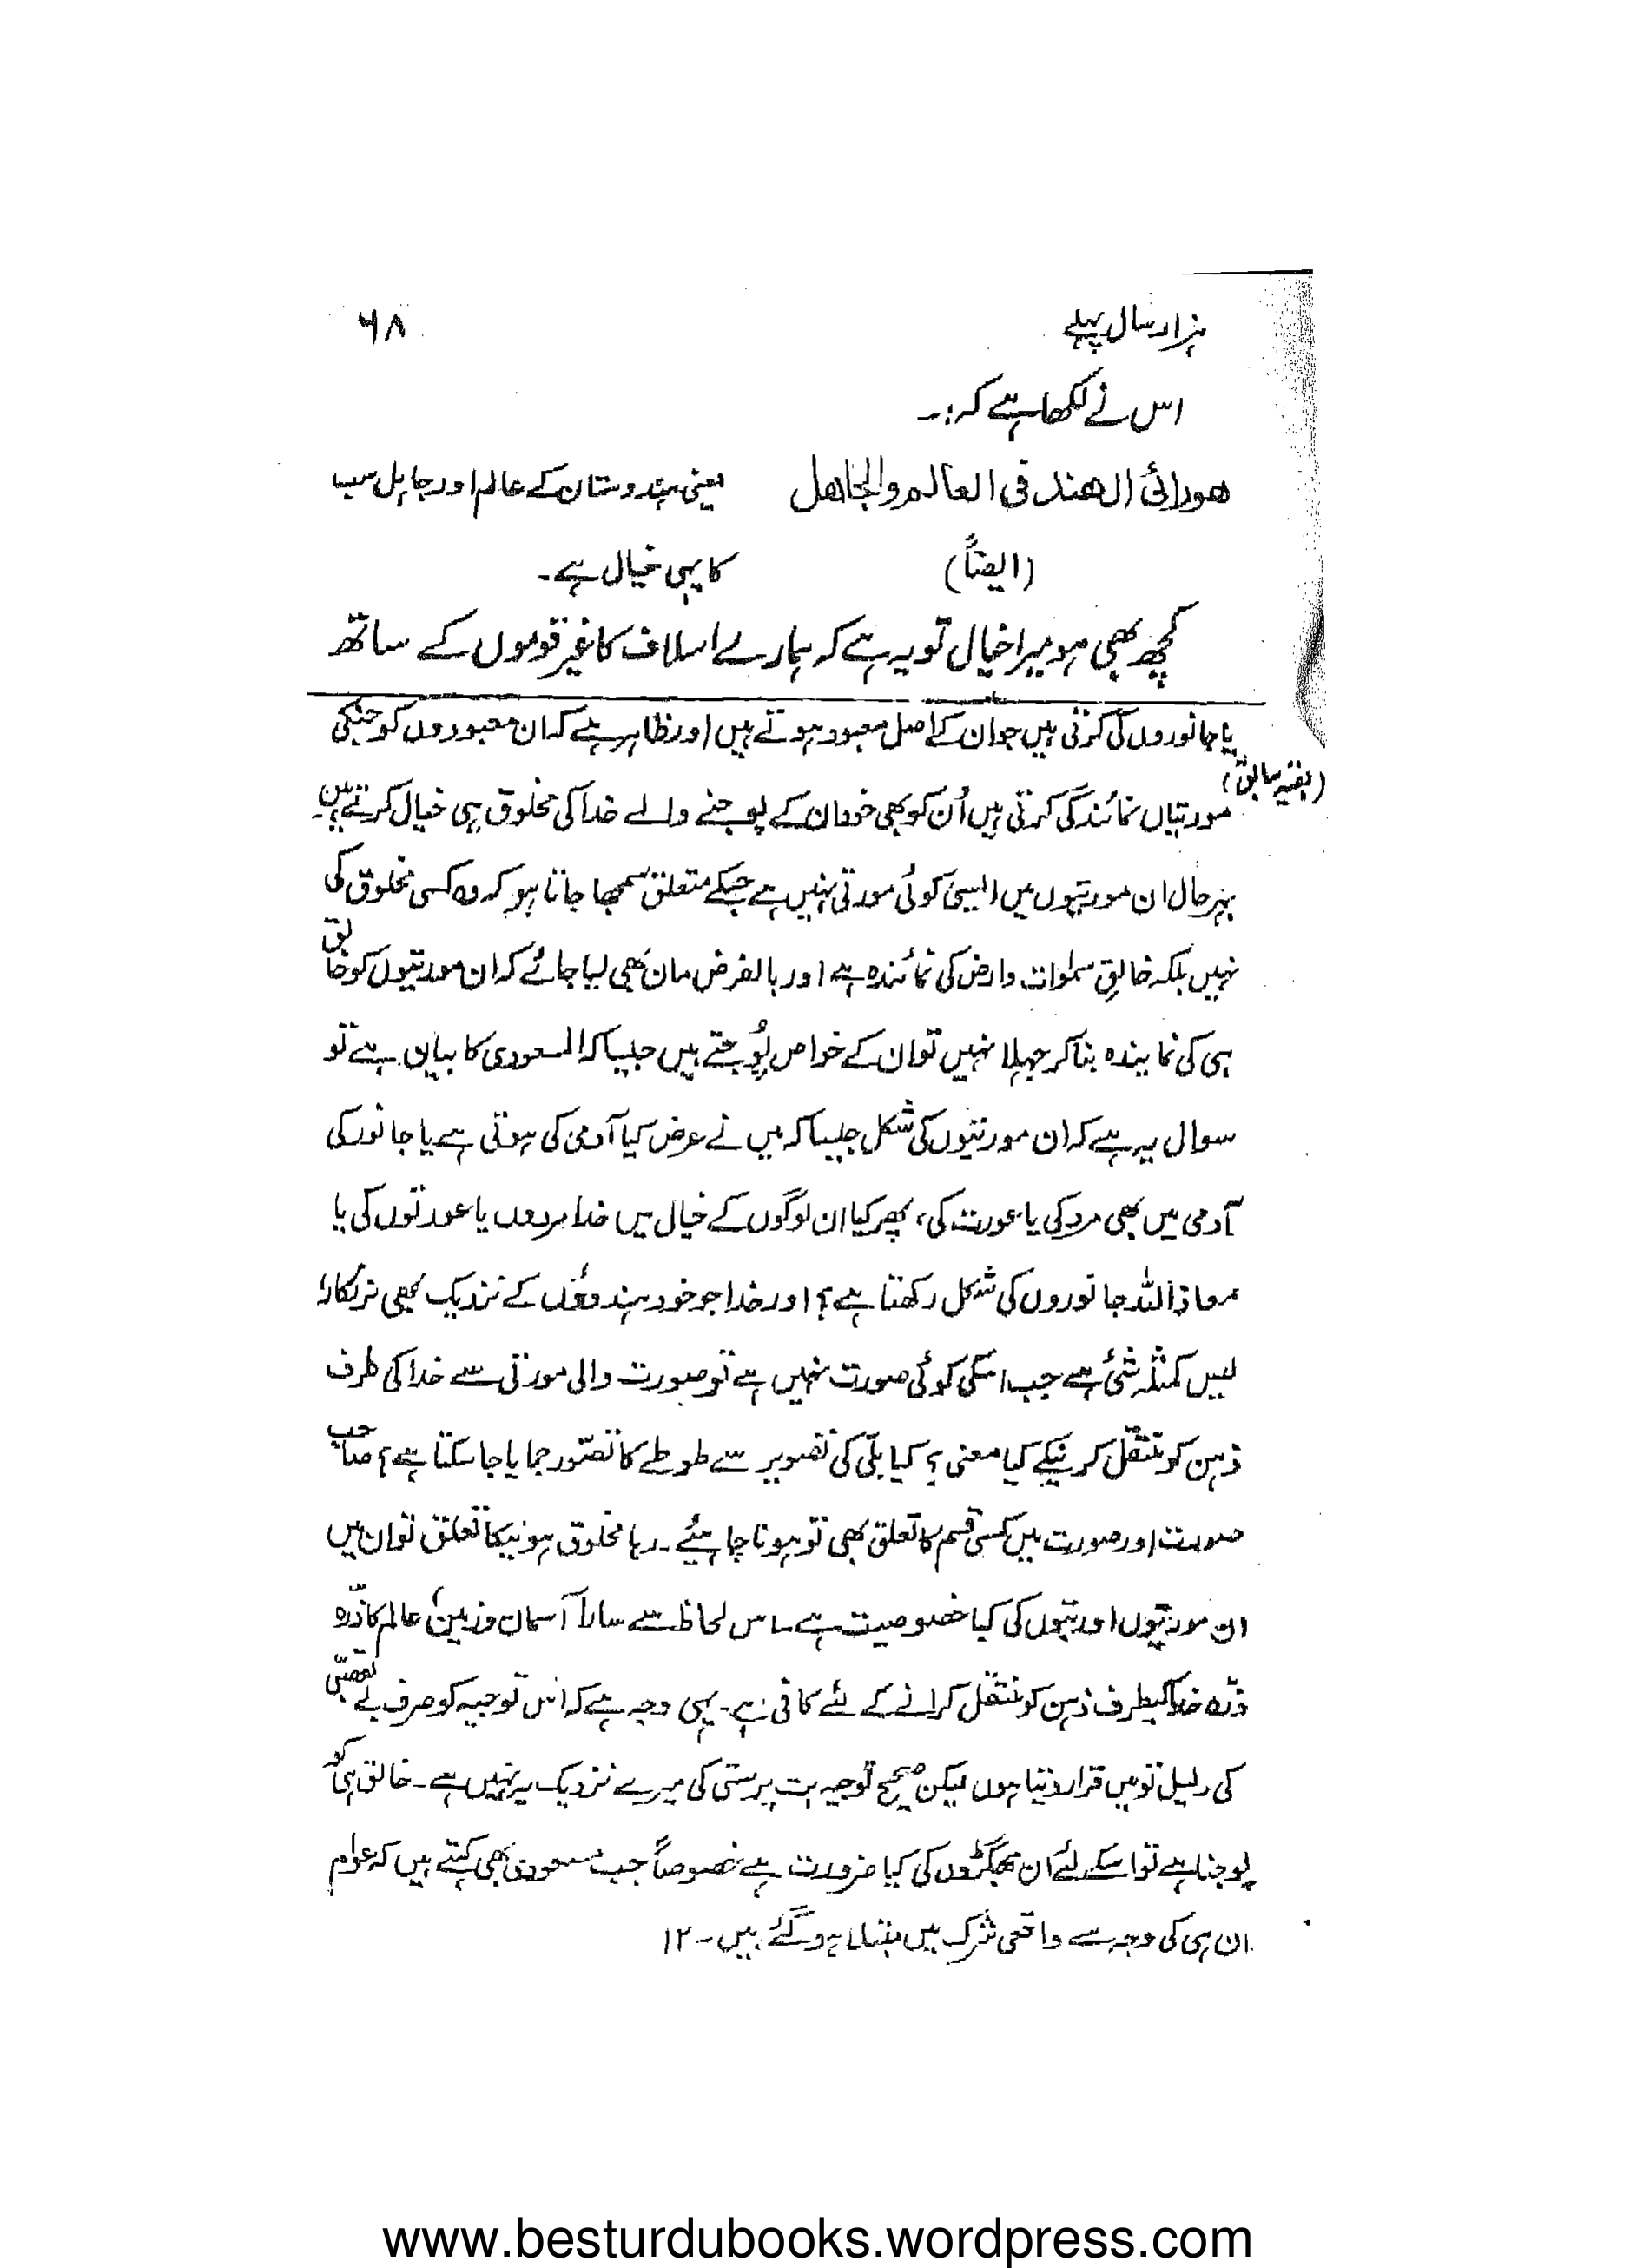 ہزار سال پہلے ۶۸
اس نے لکھا ہے کہ:۔
ھورائ الھند فی العالم والجاھل یعنی ہندوستان کے عالم اور جاہل سب
(ایضاً) کا یہی خیال ہے۔
کچھ بھی ہو میرا خیال تو یہ ہے کہ ہمارے اسلاف کا غیر قوموں کے ساتھ
یا جانوروں کی کرتی ہیں جو ان کے اصل معبود ہوتے ہیں اور ظاہر ہے کہ ان معبودوں کو جنکی
(بقیہ سابق)
مورتیاں نمائندگی کرتی ہیں اُن کو بھی خود ان کے پوجنے والے خدا کی مخلوق ہی خیال کرتے ہیں۔
بہر حال ان مورتیوں میں ایسی کوئی مورتی نہیں ہے جسکے متعلق سمجھا جاتا ہو کہ وہ کسی مخلوق کی
نہیں بلکہ خالقِ سمٰوات وارض کی نمائندہ ہے اور بالفرض مان بھی لیا جائے کہ ان مورتیوں کو خالق
ہی کی نمایندہ بنا کر جہلا نہیں تو ان کے خواص پُوجتے ہیں جیسا کہ المسعودی کا بیان ہے تو
سوال یہ ہے کہ ان مورتیوں کی شکل جیسا کہ میں نے عرض کیا آدمی کی ہوتی ہے یا جانور کی
آدمی میں بھی مرد کی یا عورت کی، پھر کیا ان لوگوں کے خیال میں خدا مردوں یا عورتوں کی یا
معاذ اللہ جانوروں کی شکل رکھتا ہے؟ اور خدا جو خود ہندوؤں کے نزدیک بھی نرنکار،
لیس کمثلہ شئ ہے جب اسکی کوئی صورت نہیں ہے تو صورت والی مورتی سے خدا کی طرف
ذہن کو منتقل کرنیکے کیا معنی؟ کیا بلّی کی تصویر سے طوطے کا تصّور جمایا جا سکتا ہے؟ صاحب
صورت اور صورت میں کسی قسم کا تعلق بھی تو ہونا چاہیئے۔ رہا مخلوق ہونیکا تعلق تو ان میں
ان مورتیوں اور بتوں کی کیا خصوصیت ہے۔ اس لحاظ سے سارا آسمان و زمین، عالم کا ذرّہ
ذرّہ خدا کیطرف ذہن کو منتقل کرانے کے لئے کافی ہے۔ یہی وجہ ہے کہ اس توجیہ کو صرف بے تعصبّی
کی دلیل تو میں قرار دیتا ہوں لیکن صحیح توجیہ بت پرستی کی میرے نزدیک یہ نہیں ہے۔ خالق ہی کو
پوجنا ہے تو اسکے لئے ان جھگڑوں کی کیا ضرورت ہے خصوصاً جب مسعودی بھی کہتے ہیں کہ عوام
ان ہی کی وجہ سے واقعی شرک میں مبتلا ہو گئے ہیں۔ ۱۲
www.besturdubooks.wordpress.com